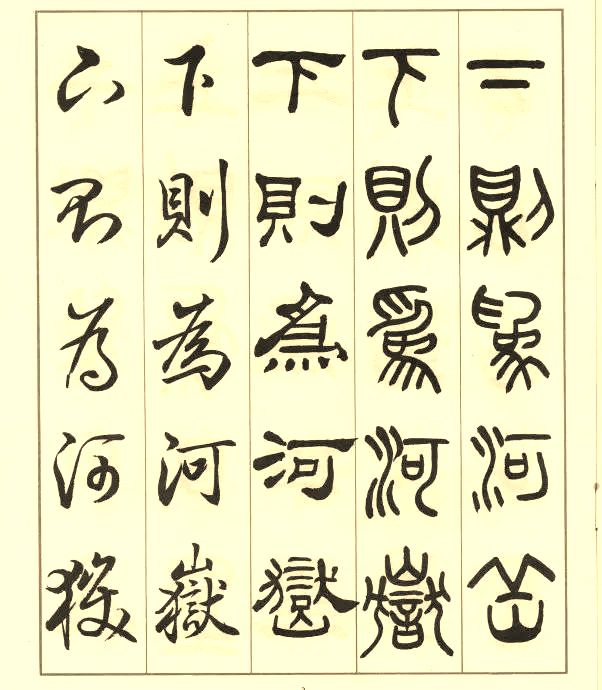 下則爲河嶽
下則爲河嶽
下則為河嶽
下則為河嶽
下則為河嶽